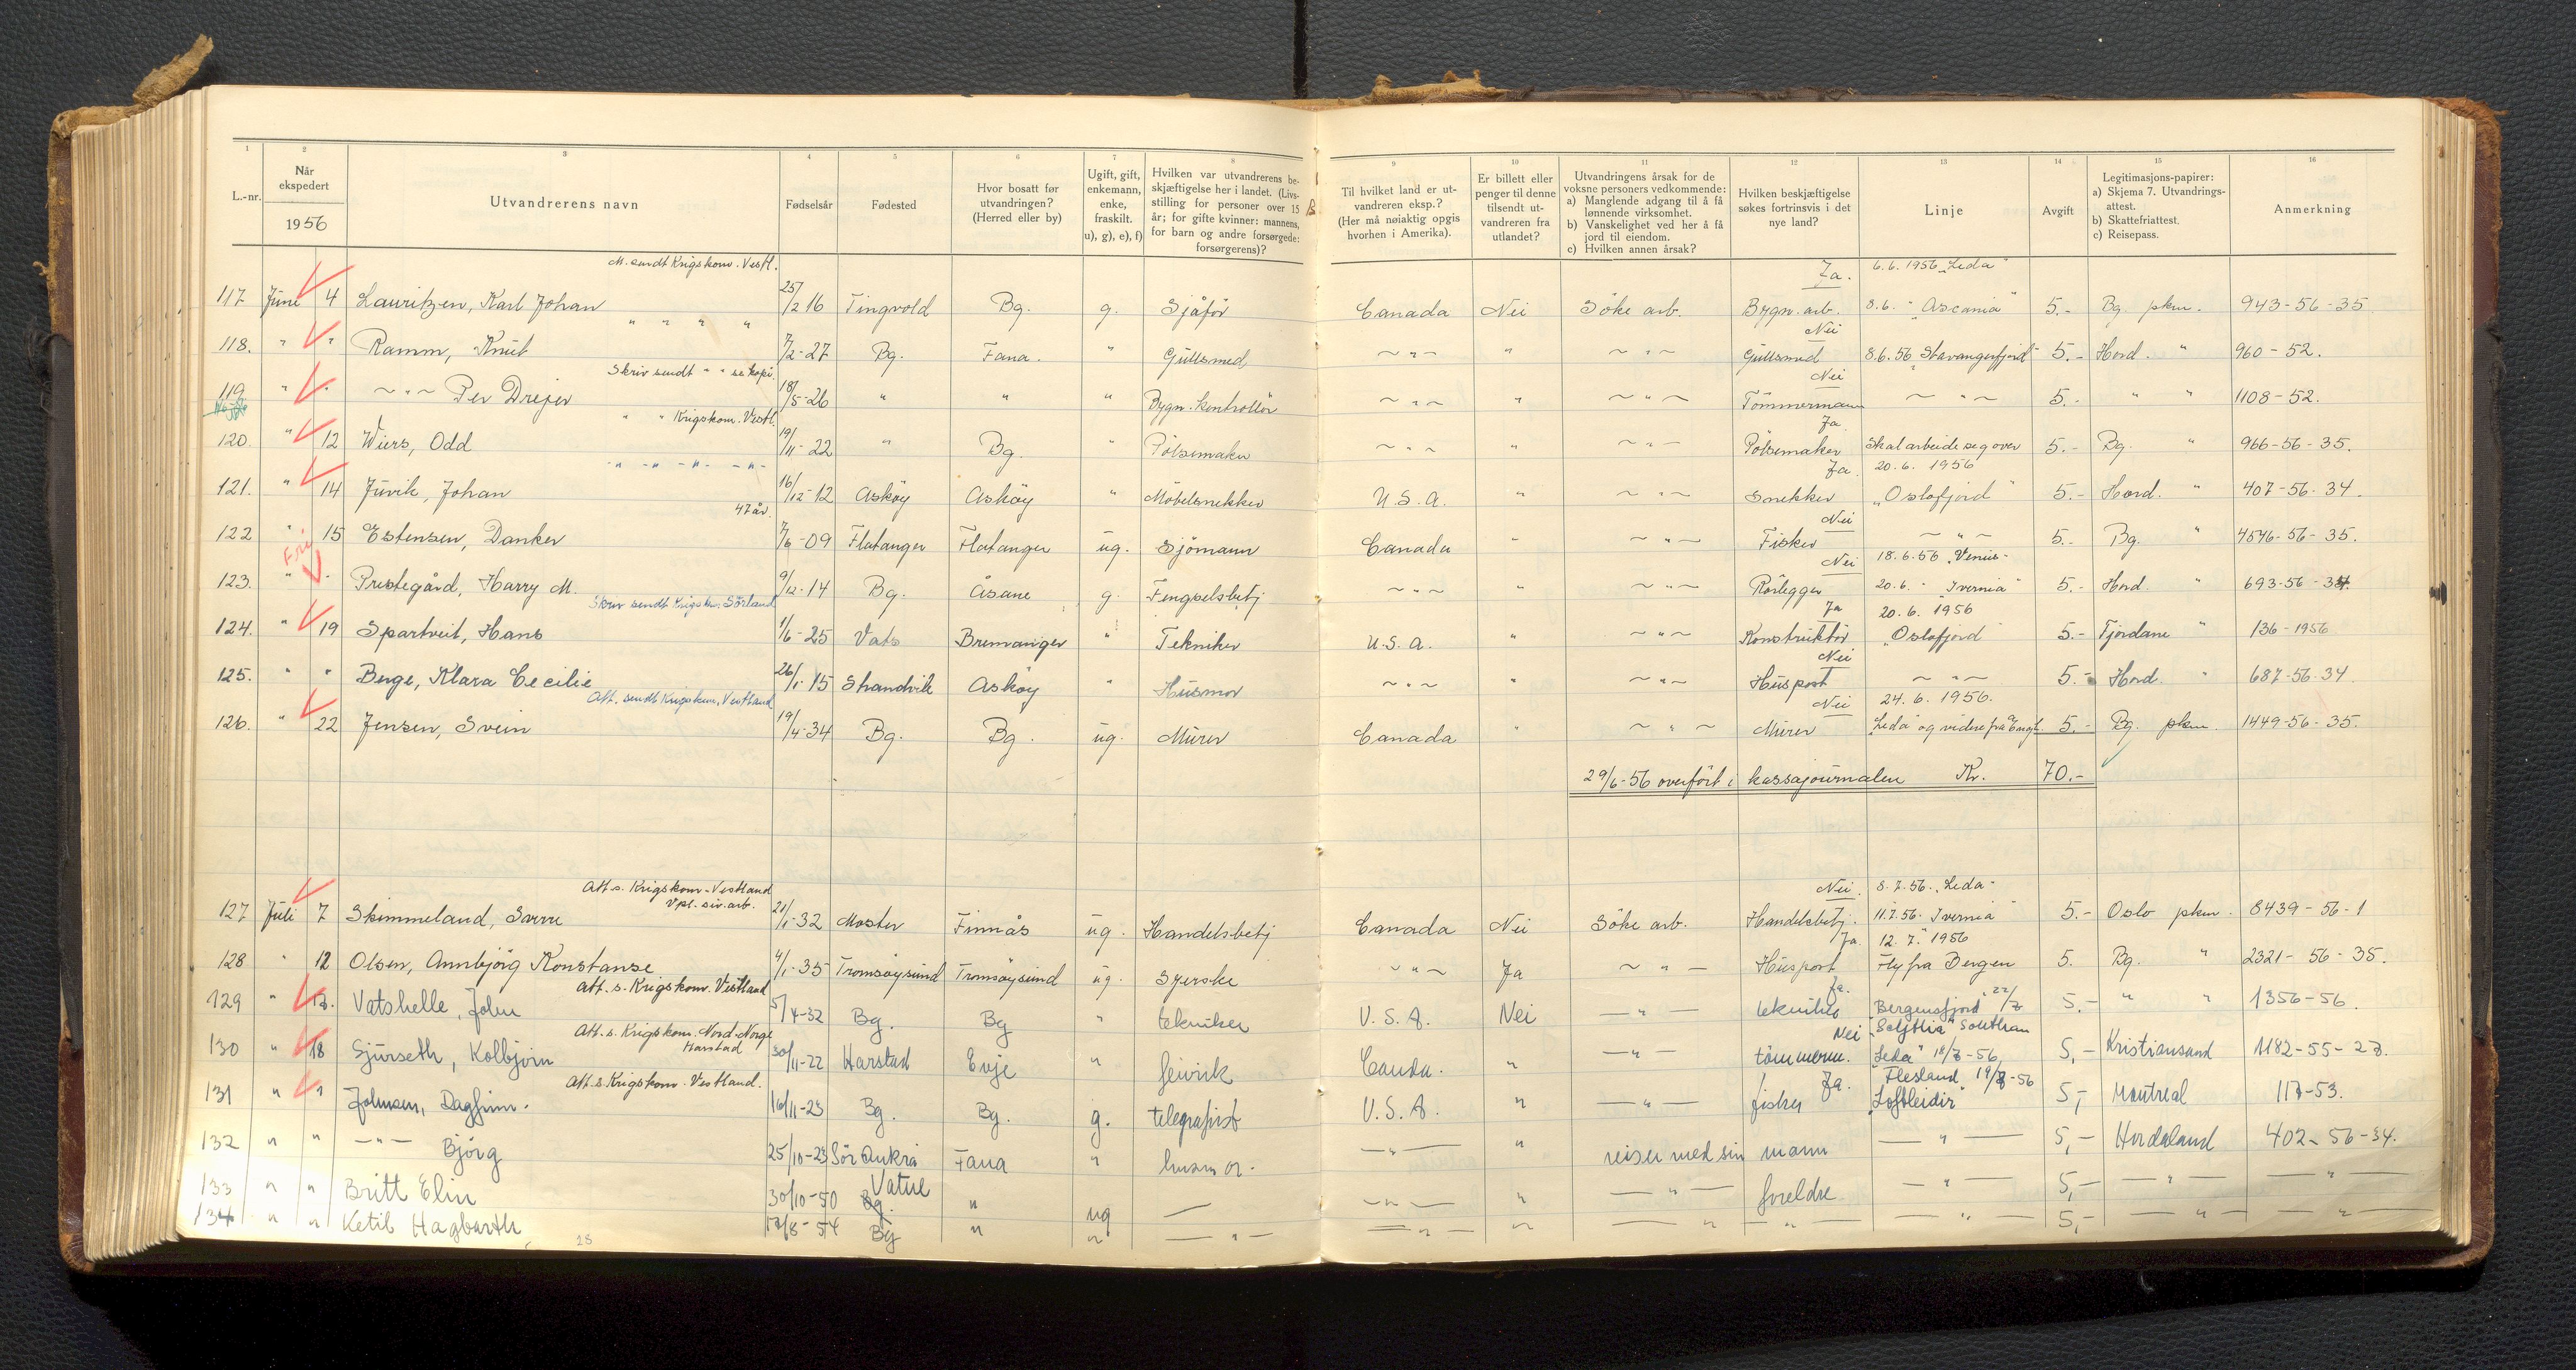 1 2 3 4 5 6 7 8 9 10 11 12 13 14 15 16
L.-nr. Når ekspedert 1956 Utvandrerens navn Fødselsår Fødested Hvor bosatt før utvandringen? (Herred eller by) Ugift, gift, enkemann, enke, fraskilt. u), g), e), f) Hvilken var utvandrerens beskjæftigelse her i landet. (Livsstilling for personer over 15 år; for gifte kvinner: mannens, for barn og andre forsørgede: forsørgerens)? Til hvilket land er utvandreren eksp.? (Her må nøiaktig opgis hvorhen i Amerika). Er billett eller penger til denne tilsendt utvandreren fra utlandet? Utvandringens årsak for de voksne personers vedkommende: a) Manglende adgang til å få lønnende virksomhet. b) Vanskelighet ved her å få jord til eiendom. c) Hvilken annen årsak? Hvilken beskjæftigelse søkes fortrinsvis i det nye land? Linje Avgift Legitimasjons-papirer: a) Skjema 7. Utvandringsattest. b) Skattefriattest. c) Reisepass. Anmerkning
M. sendt Krigskom. Vestl. Ja. 6.6. 1956 "Leda"
117 Juni 4 Lauritzen, Karl Johan 25/2 16 Tingvold Bg. g. Sjåför Canada Nei Söke arb. Bygn. arb. 8.6. - "Ascania" 5.- Bg. pkm. 943-56-35
" " " " Nei
118. " " Ramm, Knut 7/2-27 Bg. Fana. " Gullsmed ~"~ " ~"~ Gullsmed 8.6.56 "Stavangerfjord" 5.- Hord. " 960-52.
Skriv sendt " " se kopi. Nei
119. " " ~"~ Per Dreyer 18/5-26 " " " Bygn. kontrollör ~"~ " ~"~ Tömmermann ~"~ 5.- " " 1108-52.
" " Krigskom. Vestl. Ja
120. " 12 Wiers, Odd 19/11-22 " Bg. " Pölsemaker ~"~ " ~"~ Pölsemaker Skal arbeide seg over 5.- Bg. " 966-56-35.
-"- -"- -"- -"- Ja. 20.6. 1956
121. " 14 Juvik, Johan 16/12-12 Asköy Asköy " Möbelsnekker U.S.A. " ~"~ Snekker "Oslofjord" 5.- Hord. " 407-56-34.
47 år. Nei
122 " 15 Estensen, Danker 7/6-09 Flatanger Flatanger ug. Sjömann Canada " ~"~ Fisker ~"~ 5.- Bg. " 4546-56-35.
Fri Nei 18.6.56 "Venus"
123. " " Prestegård, Harry M. 9/12-14 Bg. Åsane g. Fengselsbetj ~"~ " ~"~ Rörlegger 20.6. - "Ivernia" 5.- Hord. " 693-56-34.
Skriv sendt Krigskom. Sörland Ja 20.6. 1956
124. " 19 Spartveit, Hans 1/6-25 Vats Bremanger " Tekniker U.S.A. " ~"~ Konstruktör "Oslofjord" 5.- Fjordane " 136-1956
Nei
125. " " Berge, Klara Cecilie 26/1-15 Strandvik Asköy " Husmor ~"~ " ~"~ Huspost ~"~ 5.- Hord. " 687-56-34.
Att. sendt Krigskom. Vestland Nei 24.6. 1956.
126. " 22 Jensen, Svein 19/4-34 Bg. Bg. ug. Murer Canada " ~"~ Murer "Leda" og videre fra Engl. 5.- Bg. pkm. 1449-56-35.
29/6-56 overfört i kassajournalen Kr. 70.-
Att s. Krigskom. Vestland Vpl. siv. arb. Nei. 8.7.56. "Leda"
127 Juli 7 Skimmeland, Sverre 21/1-32 Moster Finnås ug. Handelsbetj Canada Nei Söke arb. Handelsbetj. 11.7.56. "Ivernia" 5.- Oslo pkm. 8439-56-1
Ja. 12.7. 1956
128 " 12 Olsen, Annbjörg Konstanse 4/1-35 Tromsöysund Tromsöysund ug. Syerske ~"~ Ja ~"~ Huspost Fly fra Bergen 5. Bg. " 2321-56-35.
Att. s. Krigskom. Vestland Ja.
129 " 13. Vatshelle, John 5/4-32 Bg. Bg " tekniker U.S.A. Nei —"— tekniker "Bergensfjord" 22/7 5.- " " 1356-56.
Att. s. Krigskom. Nord-Norge Harstad Nei
130 " 18 Sjurseth, Kolbjörn 30/11-22 Harstad Evje " Canada. " —"— tömmerm. "Leda" 18/7-56, 5,- Kristiansand 1182-55-27.
Att. s. Krigskom. Vestland. Ja. Flesland 19/7-56
131 " " Johnsen, Dagfinn. 16/11-23 Bg. Bg. g. telegrafist U.S.A. " —"— fisker "Loftleidir" 5,- Montreal 117-53.
132 " " —"— Björg 25/10-23 Sör Aukra Fana " husmor. —"— " reiser med sin mann —"— 5,- Hordaland 402-56-34.
Vatne
133 " " Britt Elin 30/10-50 Bg. " ug — —"— " —"— foreldre —"— 5,- —"— —"—
134 " " Ketil Hagbarth 12/8-54 Bg " " —"— —"— " —"— —"— —"— 5,- —"— —"—
28